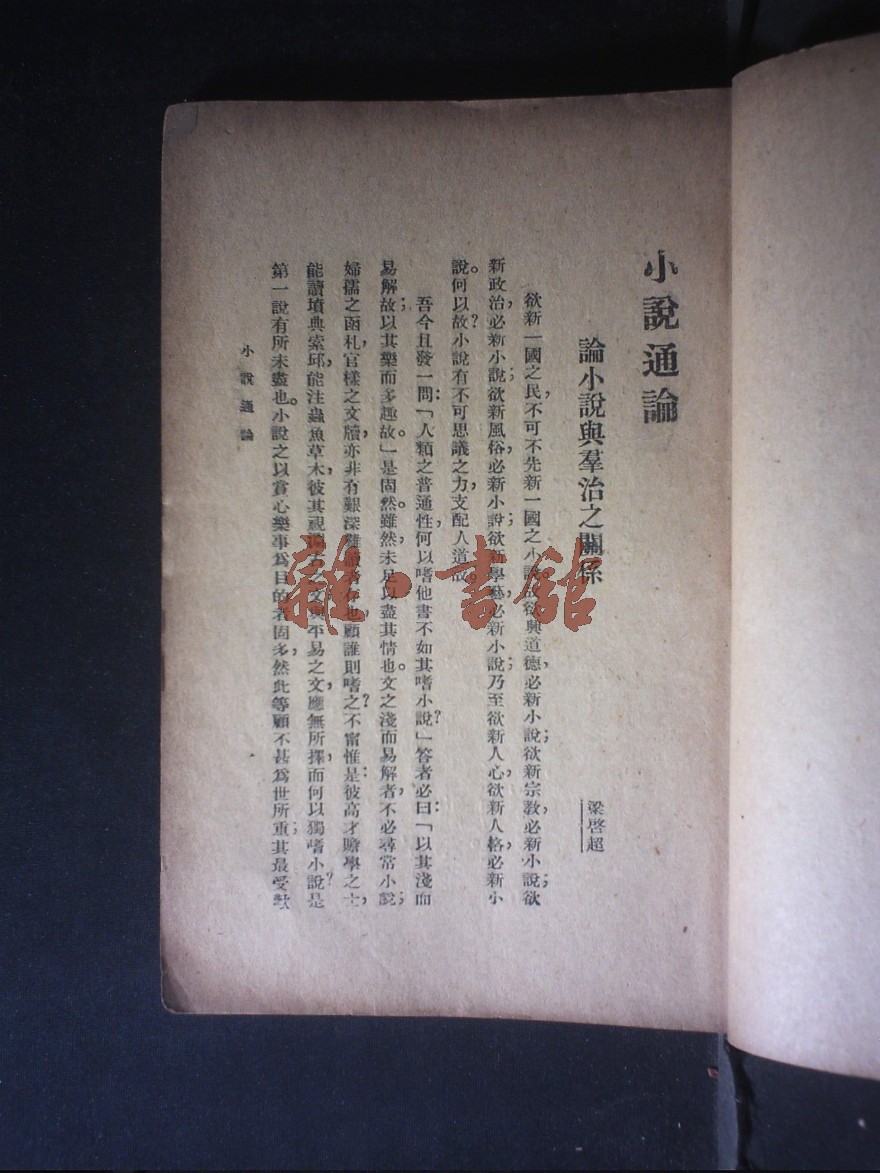 小說通論
論小說與羣治之關係
梁啓超
欲新一國之民，不可不先新一國之小說。故欲興道德，必新小說；欲新宗教，必新小說；欲
新政治，必新小說；欲新風俗，必新小說；欲新學藝，必新小說；乃至欲新人心，欲新人格，必新小
說。何以故？小說有不可思議之力，支配人道故。
吾今且發一問：「人類之普通性，何以嗜他書不如其嗜小說？」答者必曰：「以其淺而
易解故；以其樂而多趣故。」是固然。雖然，未足以盡其情也。文之淺而易解者，不必尋常小說；
婦孺之函札，官樣之文牘，亦非有艱深難讀者存也，顧誰則嗜之？不甯惟是：彼高才贍學之士，
能讀墳典索邱，能注蟲魚草木，彼其視淵古之文與平易之文，應無所擇，而何以獨嗜小說？是
第一說有所未盡也。小說之以賞心樂事爲目的者固多，然此等顧不甚爲世所重；其最受歡
小說通論
一
雜·書館